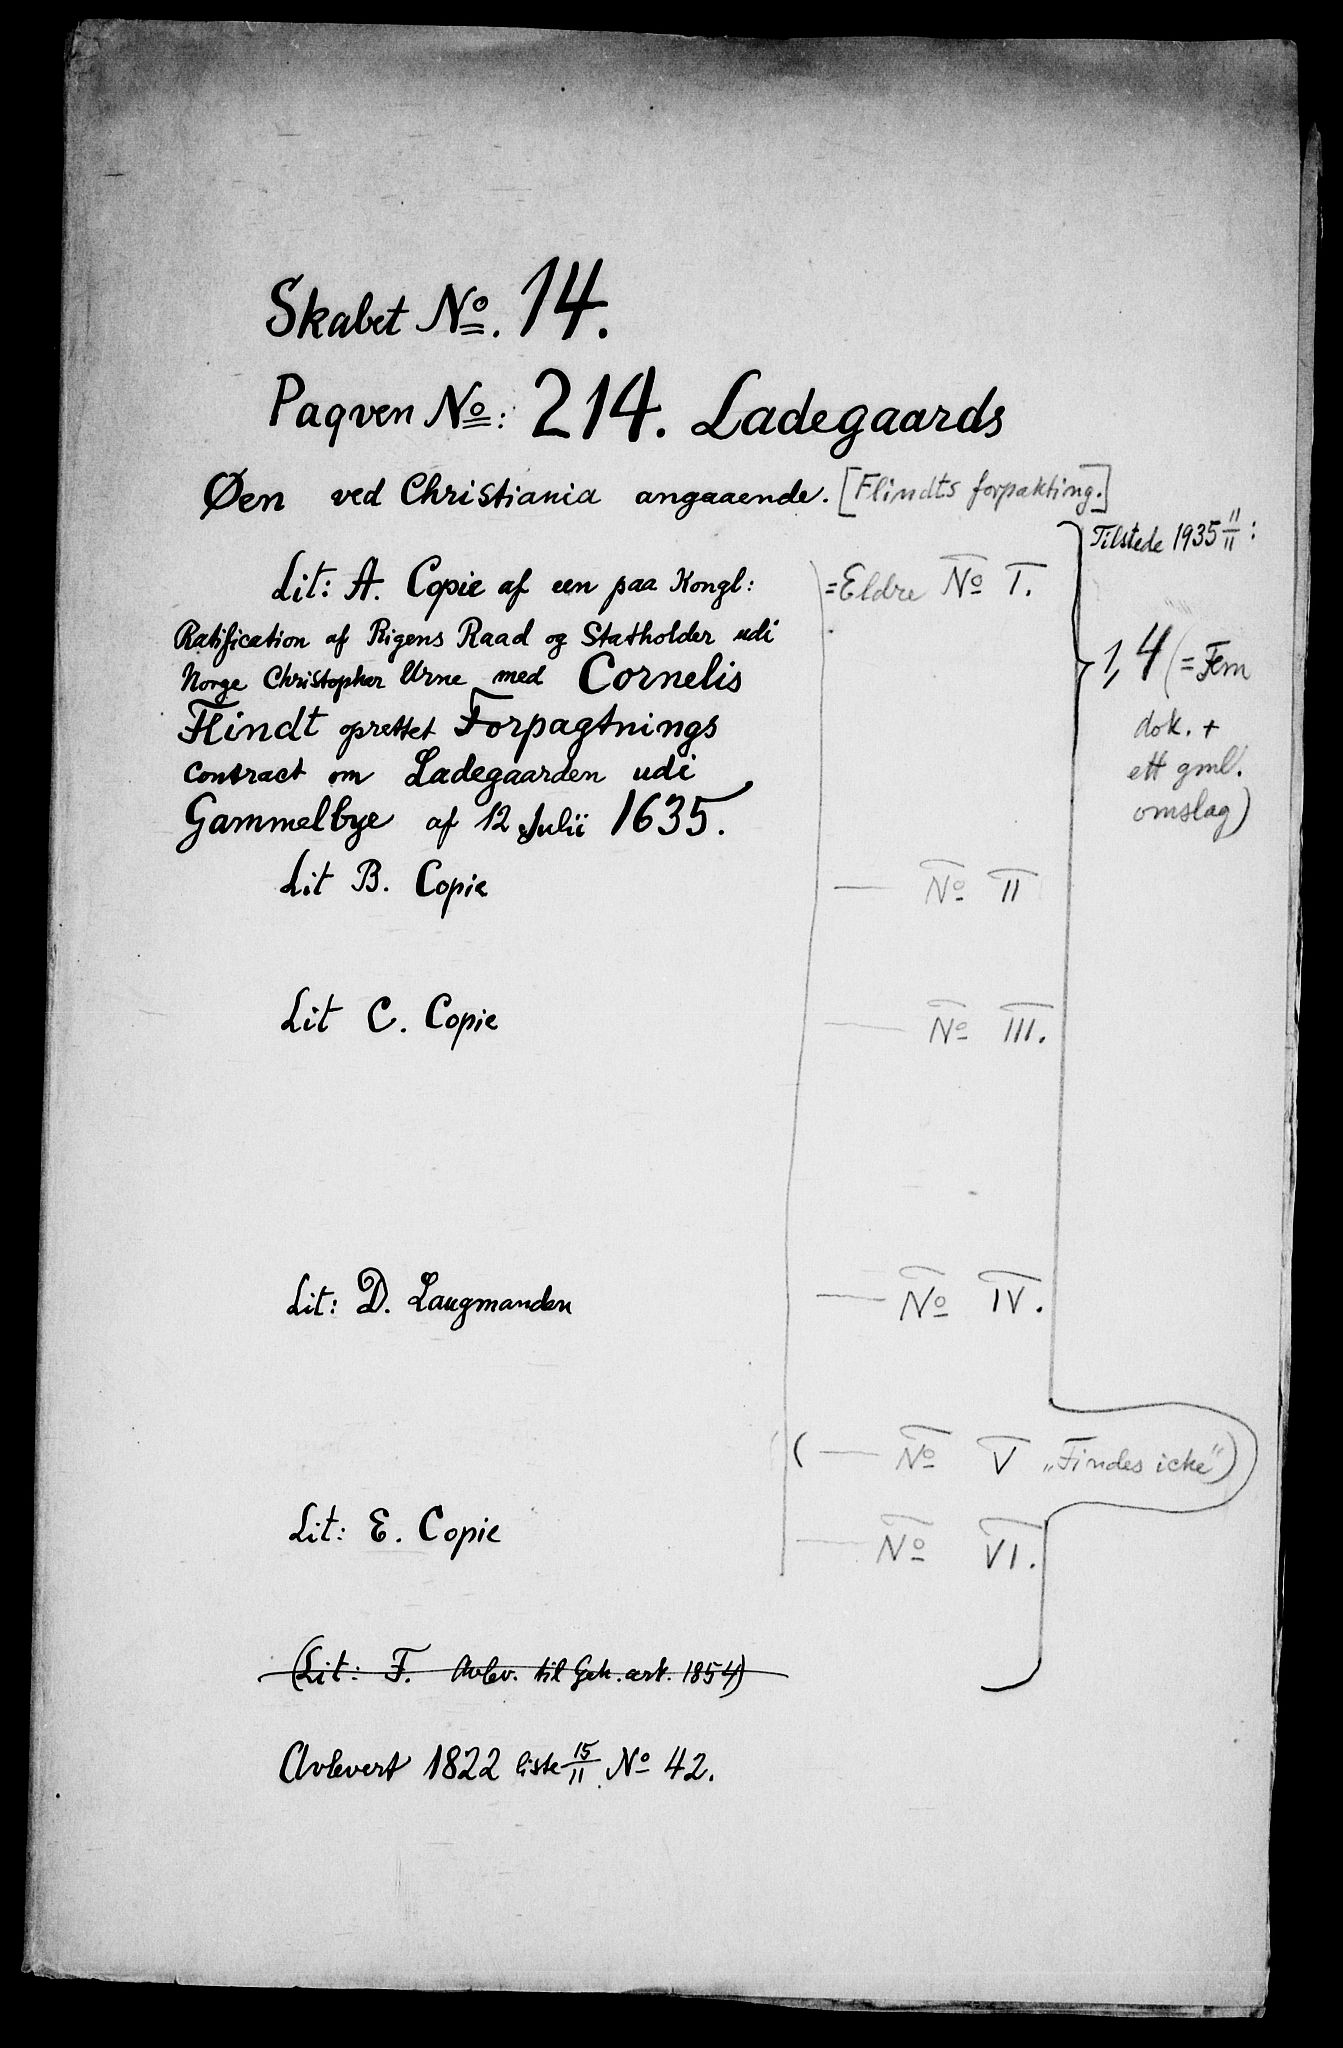 Skabet No. 14.
Paqven No: 214. Ladegaards
Øen ved Christiania angaaende. [Flindts forpakting.]
Tilstede 1935 11/11:
Lit: A. Copie af een paa Kongl:
=Eldre No I.
Ratification af Rigens Raad og Statholder udi
Norge Christopher Urne med Cornelis
1, 4 (= Fem
Flindt oprettet Forpagtnings
dok. +
contract om Ladegaarden udi
ett gml.
Gammelbye af 12 Julii 1635.
omslag)
Lit B. Copie
— No II
Lit C. Copie
— No III.
Lit: D. Laugmanden
— No IV.
(— No V „Findes icke")
Lit: E. Copie
— No VI.
(Lit: F. Avlev. til Geh. ark. 1854)
Avlevert 1822 liste 15/11 No 42.